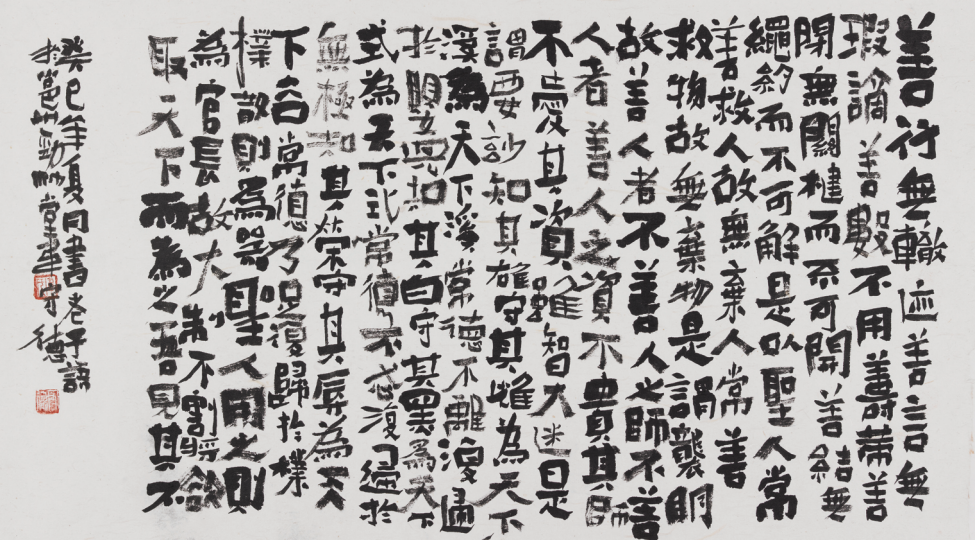 善行無轍迹善言無
瑕謫善數不用籌策善
閉無關楗而不可開善結無
繩約而不可解是以聖人常
善救人故無棄人常善
救物故無棄物是謂襲明
故善人者不善人之師不善
人者善人之資不貴其師
不愛其資雖智大迷是
謂要妙知其雄守其雌為天下
溪為天下溪常德不離復歸
於嬰兒知其白守其黑為天下
式為天下式常德不忒復歸於
無極知其榮守其辱為天
下谷常德乃足復歸於樸
樸散則為器聖人用之則
為官長故大制不割將欲
取天下而為之吾見其不
癸巳年夏月書老子語
於邕州勁帆堂韋守德